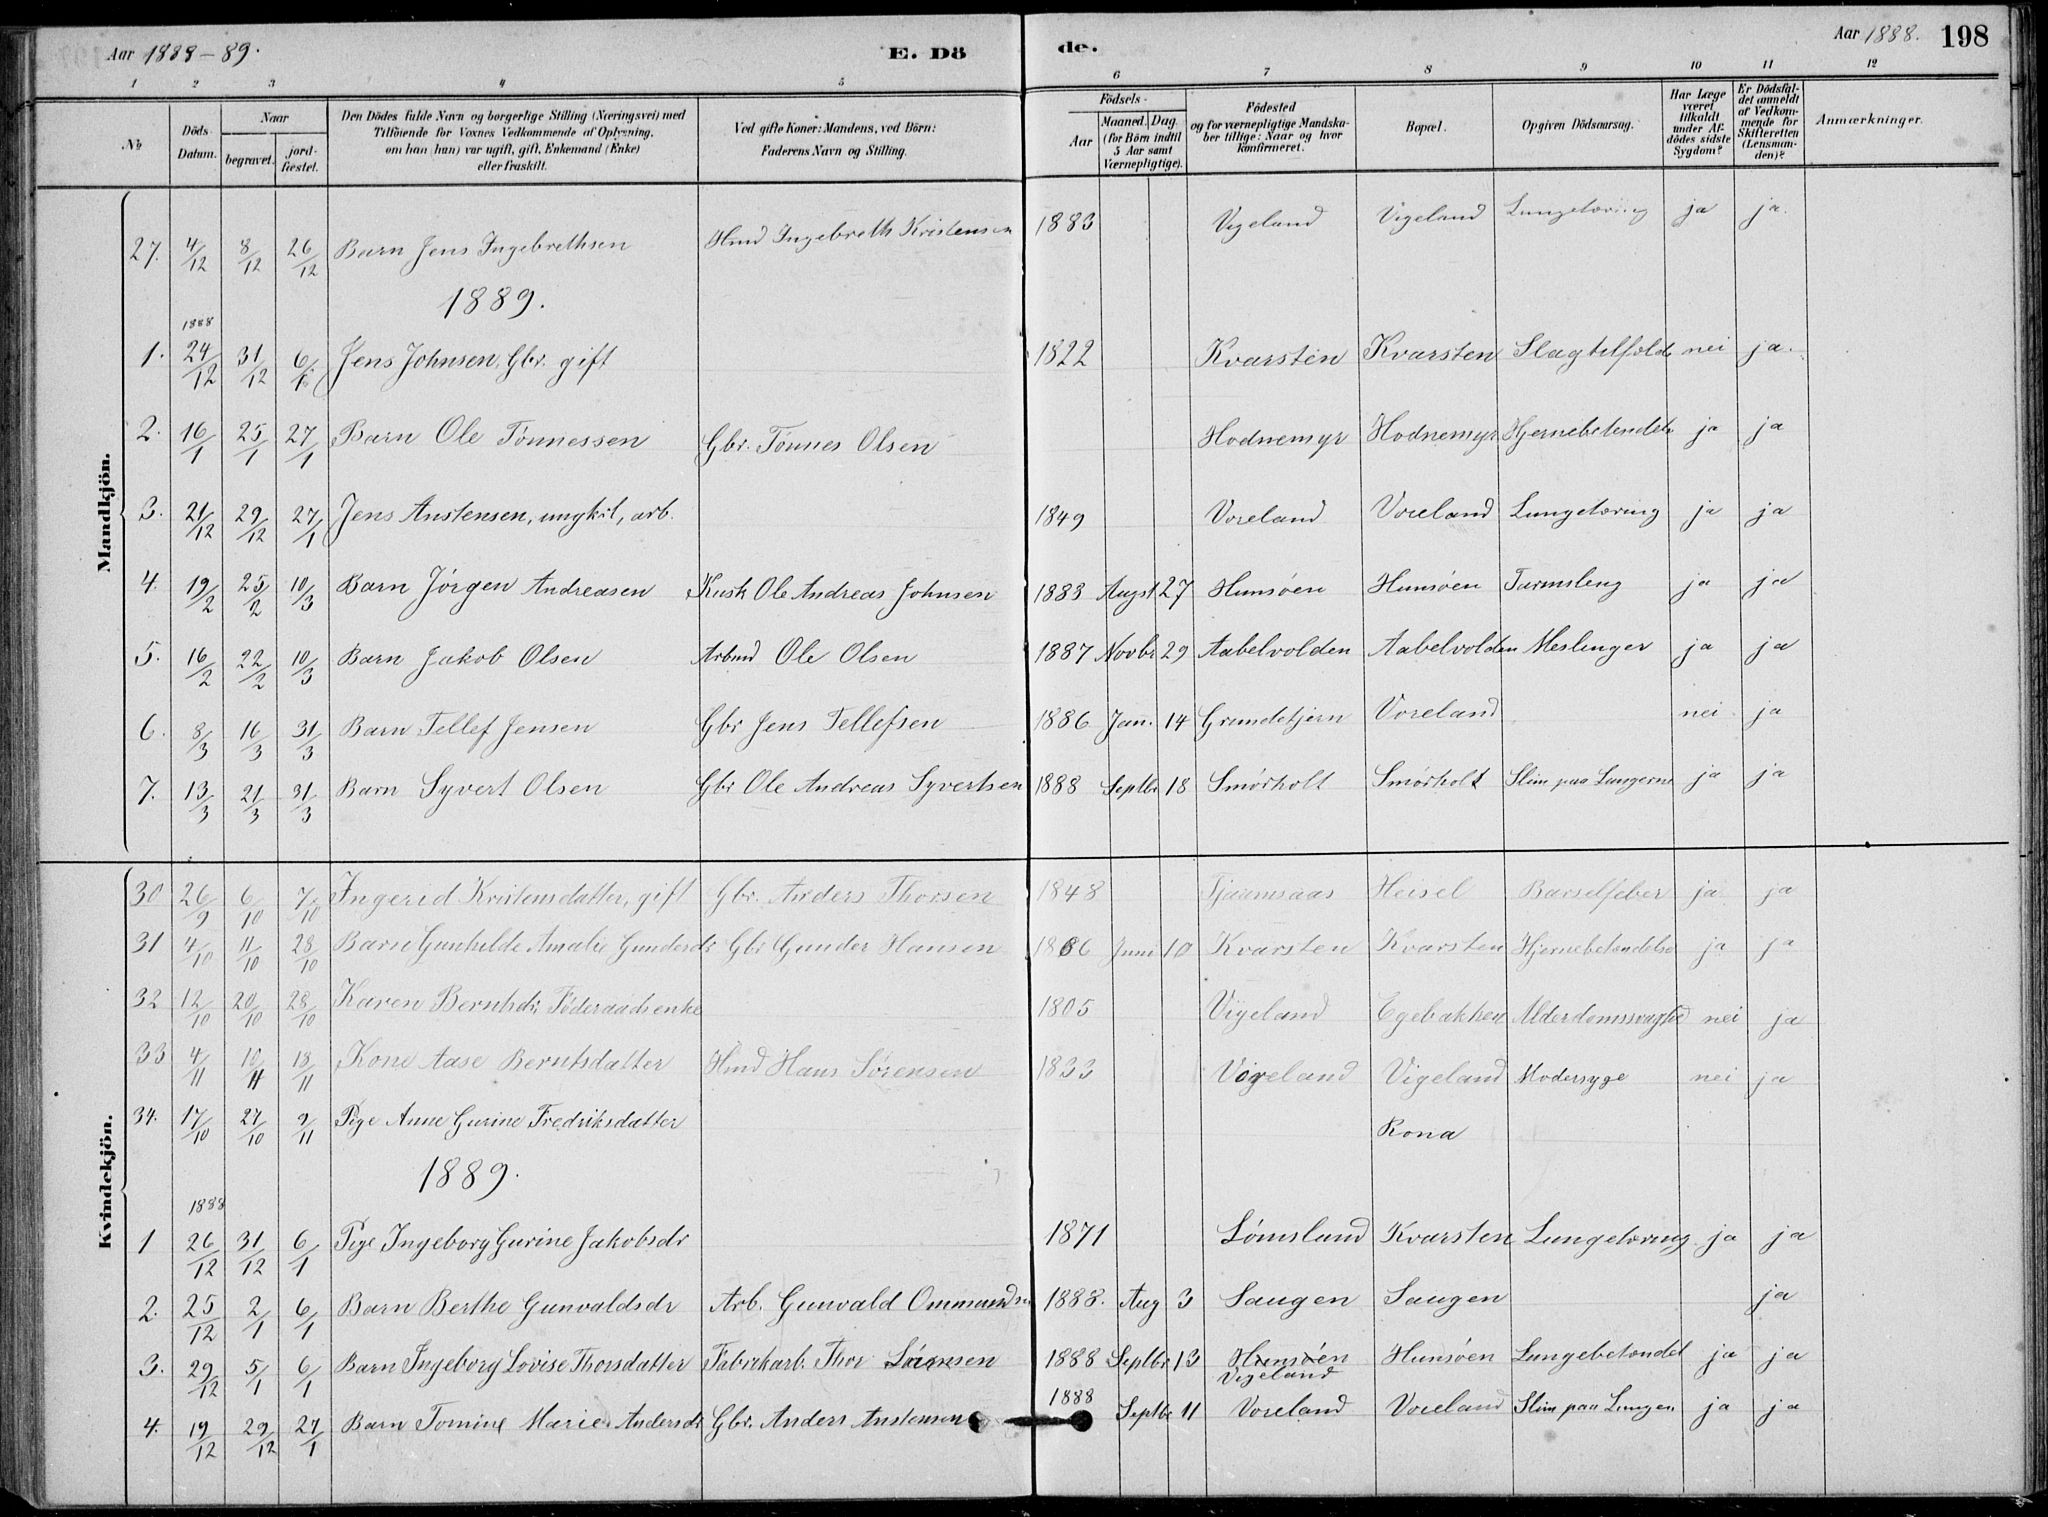 Aar 1888-89. E. Dö de. Aar 1888. 198
1 2 3 4 5 6 7 8 9 10 11 12
No
Döds Datum.
Naar
begravet.
jordfæstet.
Den Dödes fulde Navn og borgerlige Stilling (Næringsvei) med
Tilföiende for Voxnes Vedkommende af Oplysning,
om han (hun) var ugift, gift, Enkemand (Enke)
eller fraskilt.
Ved gifte Koner: Mandens, ved Börn:
Faderens Navn og Stilling.
Födsels-
Aar
Maaned. Dag.
(for Börn indtil
5 Aar samt
Værnepligtige).
Födested
og for værnepligtige Mandskaber tillige: Naar og hvor
konfirmeret.
Bopæl.
Opgiven Dödsaarsag.
Har Læge
været
tilkaldt
under Afdödes sidste
Sygdom?
Er Dödsfaldet anmeldt
af Vedkommende for
Skifteretten
(Lensmanden)?
Anmærkninger.
Mandkjön.
27. 4/12 8/12 26/12 Barn Jens Ingebrethsen Hmd Ingebreth Kristensen 1883 Vigeland Vigeland Lungetæring ja ja.
1889.
1888
1. 24/12 31/12 6/1 Jens Johnsen, Gbr. gift 1822 Kvarsten Kvarsten Slagtilfælde nei ja.
2. 16/1 25/1 27/1 Barn Ole Tönnessen Gbr. Tönnes Olsen Hodnemyr Hodnemyr Hjernebetændelse ja ja
3. 21/12 29/12 27/1 Jens Anstensen, ungkrl, arb. 1849 Voreland Voreland Lungetæring ja ja
4. 19/2 25/2 10/3 Barn Jörgen Andreasen Kusk Ole Andreas Johnsen 1883 Augst 27 Hunsöen Hunsöen Tarmsleng ja ja
5. 16/2 22/2 10/3 Barn Jakob Olsen Arbmd Ole Olsen 1887 Novbr 29 Aabelvolden Aabelvolden Meslinger ja ja
6. 8/3 16/3 31/3 Barn Tellef Jensen Gbr Jens Tellefsen 1886 Jan. 14 Grundetjern Voreland nei ja
7. 13/3 21/3 31/3 Barn Syvert Olsen Gbr Ole Andreas Syvertsen 1888 Septbr 18 Smörholt Smörholt Slim paa Lungerne ja ja
Kvindekjön.
30 26/9 6/10 7/10 Ingerid Kristensdatter, gift Gbr. Anders Thorsen 1848 Tjaamsaas Heisel Barselfeber ja ja
31 4/10 11/10 28/10 Barn Gunhilde Amalie Gundersdr Gbr Gunder Hansen 1886 Juni 10 Kvarsten Kvarsten Hjernebetændelse ja ja
32 12/10 20/10 28/10 Karen Berntsdr, Föderaadsenke 1805 Vigeland Egebakken Alderdomssvaghed nei ja
33 4/11 10/11 18/11 Kone Aase Berntsdatter Hmd Hans Sörensen 1833 Vigeland Vigeland Modersyge nei ja
34. 17/10 27/10 9/11 Pige Anne Gurine Fredriksdatter Rona
1889.
1888
1 26/12 31/12 6/1 Pige Ingeborg Gurine Jakobsdr 1871 Lömsland Kvarsten Lungetæring ja ja
2. 25/12 2/1 6/1 Barn Berthe Gunvaldsdr Arb. Gunvald Ommundsn 1888. Aug 3 Saugen Saugen ja
3. 29/12 5/1 6/1 Barn Ingeborg Lovise Thorsdatter Fabrikarb. Thor Sörensen 1888 Septbr 13 Hunsöen Hunsöen Lungebetændel ja ja
Vigeland
4. 19/12 29/12 27/1 Barn Tomine Marie Andersdr Gbr. Anders Anstensen 1888 Septbr 11 Voreland Voreland Slim paa Lungen ja ja